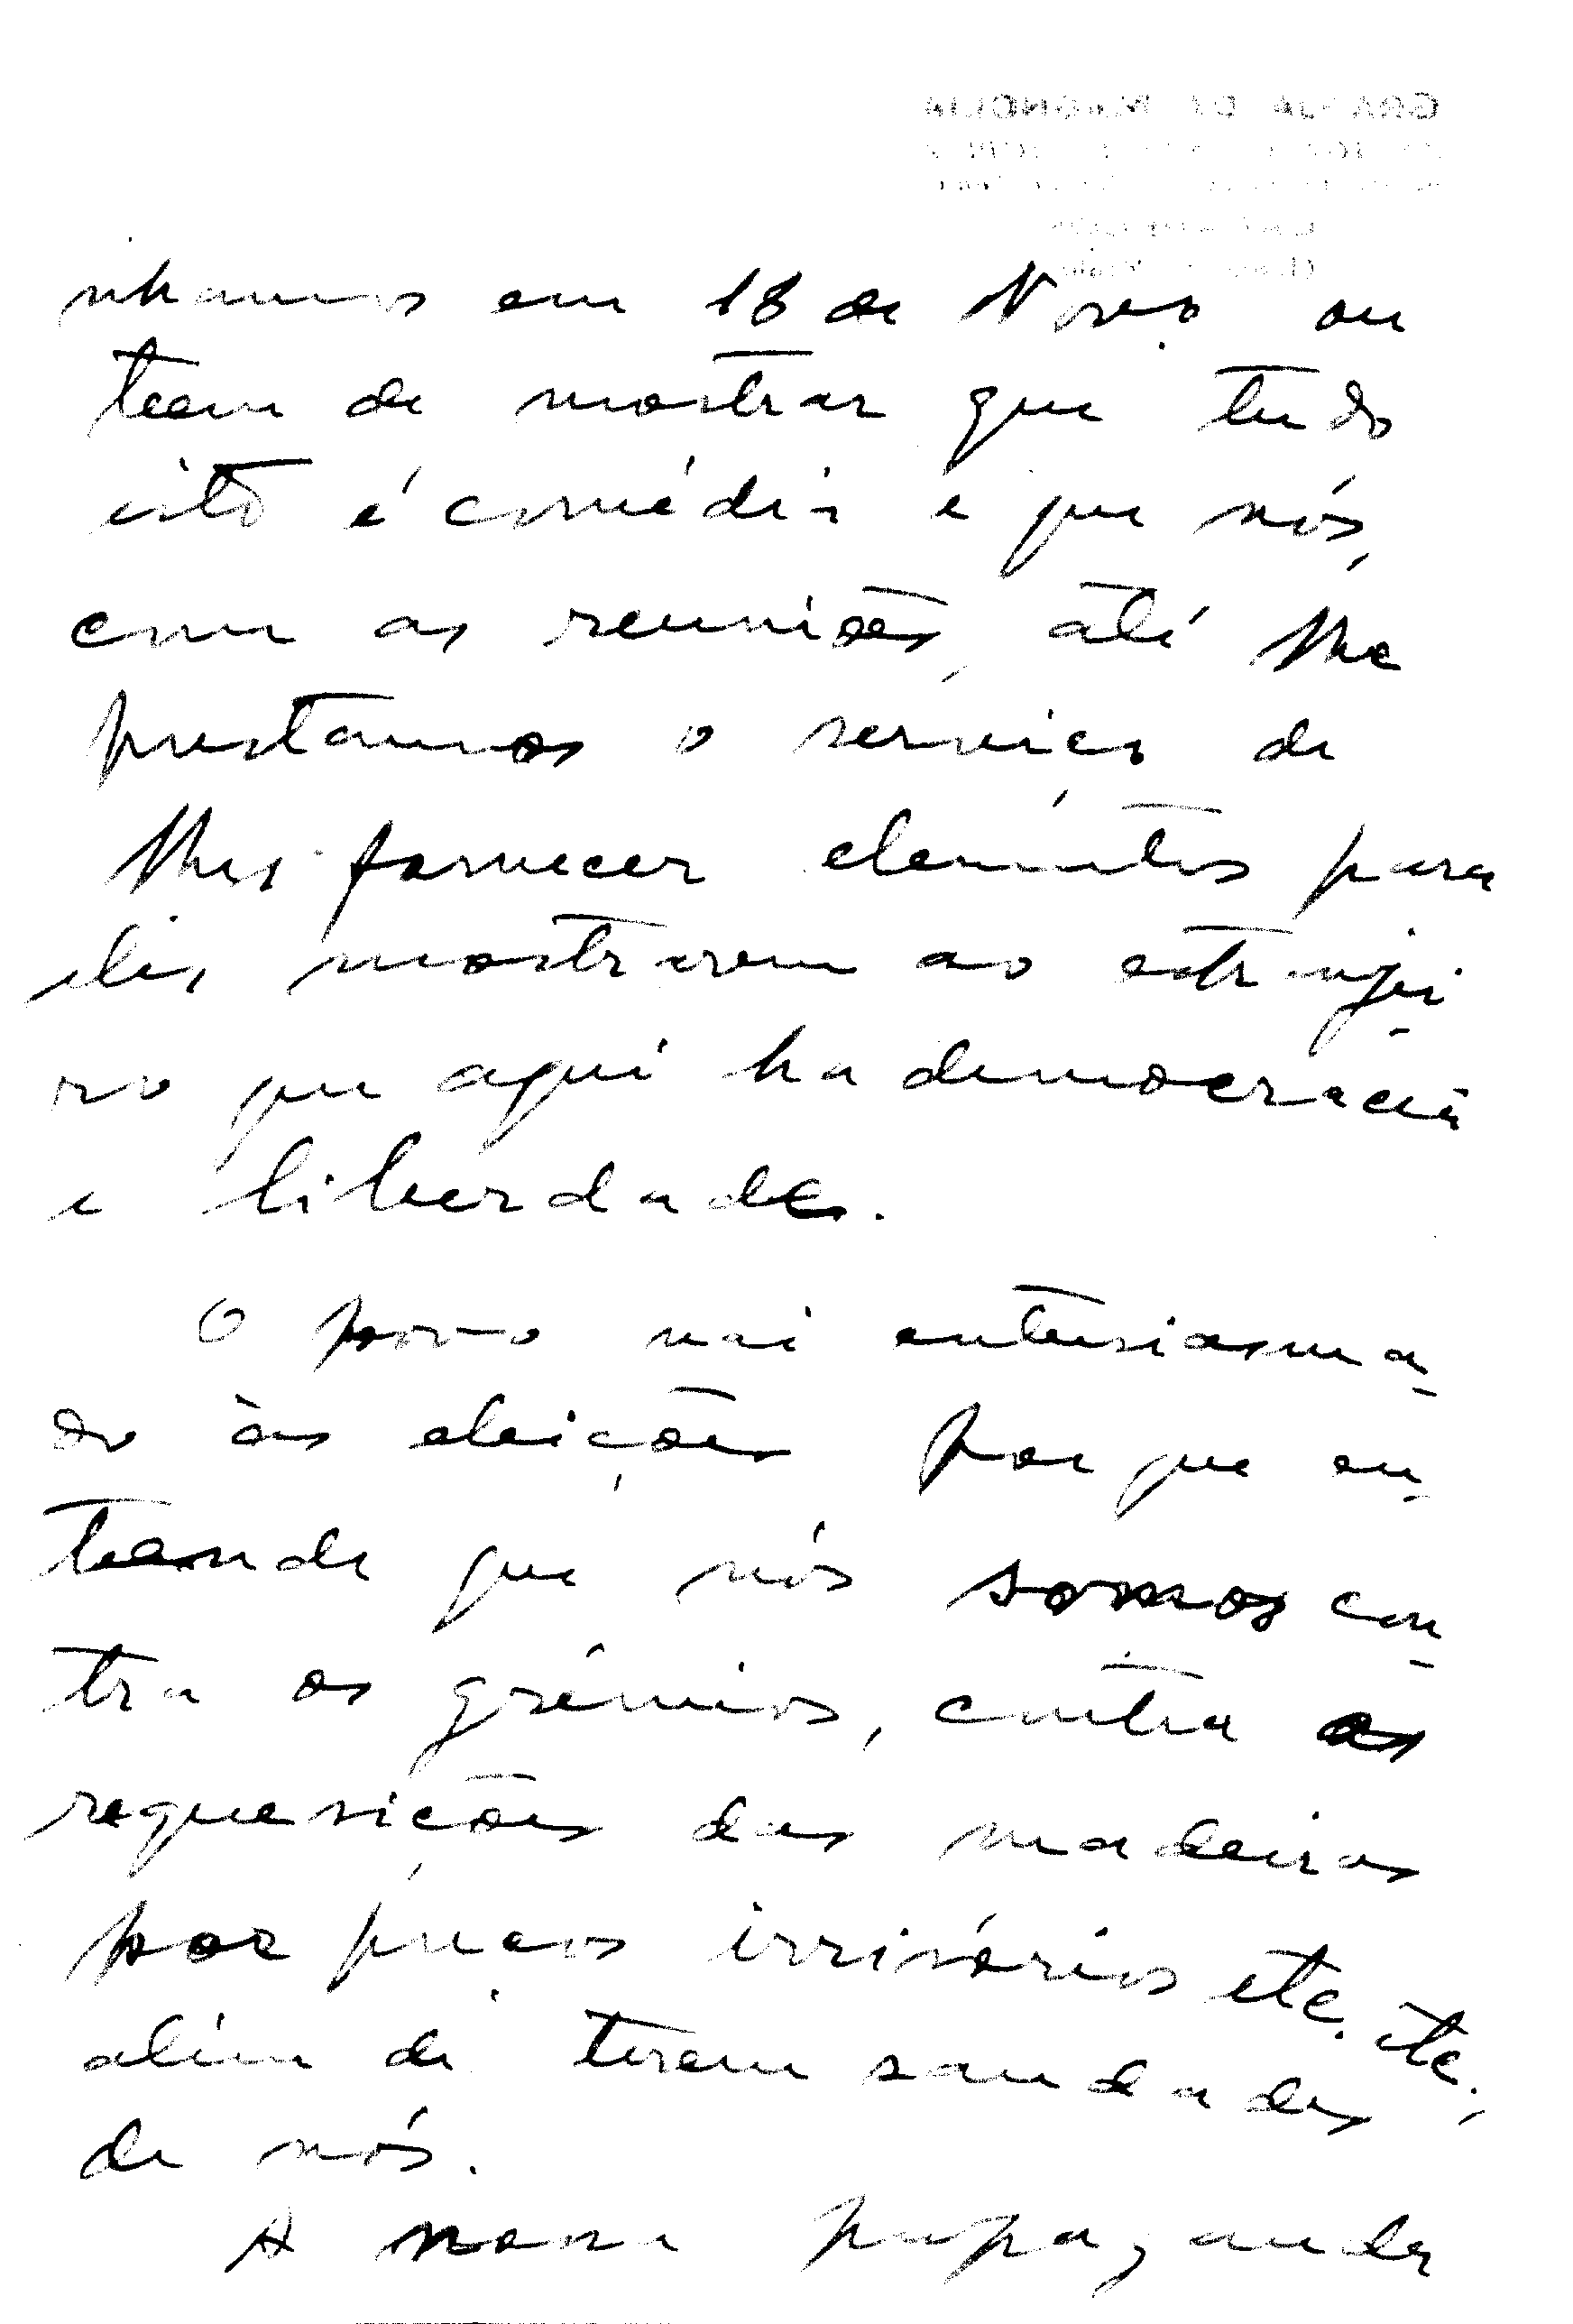 nhamos em 18 de Novo ou
teem de mostrar que tudo
isto é comédia e que nós,
com as reuniões, até lhe
prestamos o serviço de
lhes fornecer elementos para
eles mostrarem ao estrangei-
ro que aqui ha democracia
e liberdade.
O povo vai entusiasma-
do às eleições porque en-
tende que nós somos con-
tra os grémios, contra as
requesições das madeiras
por preços irrisórios etc. etc.,
além de terem saudades
de nós.
A nossa propaganda